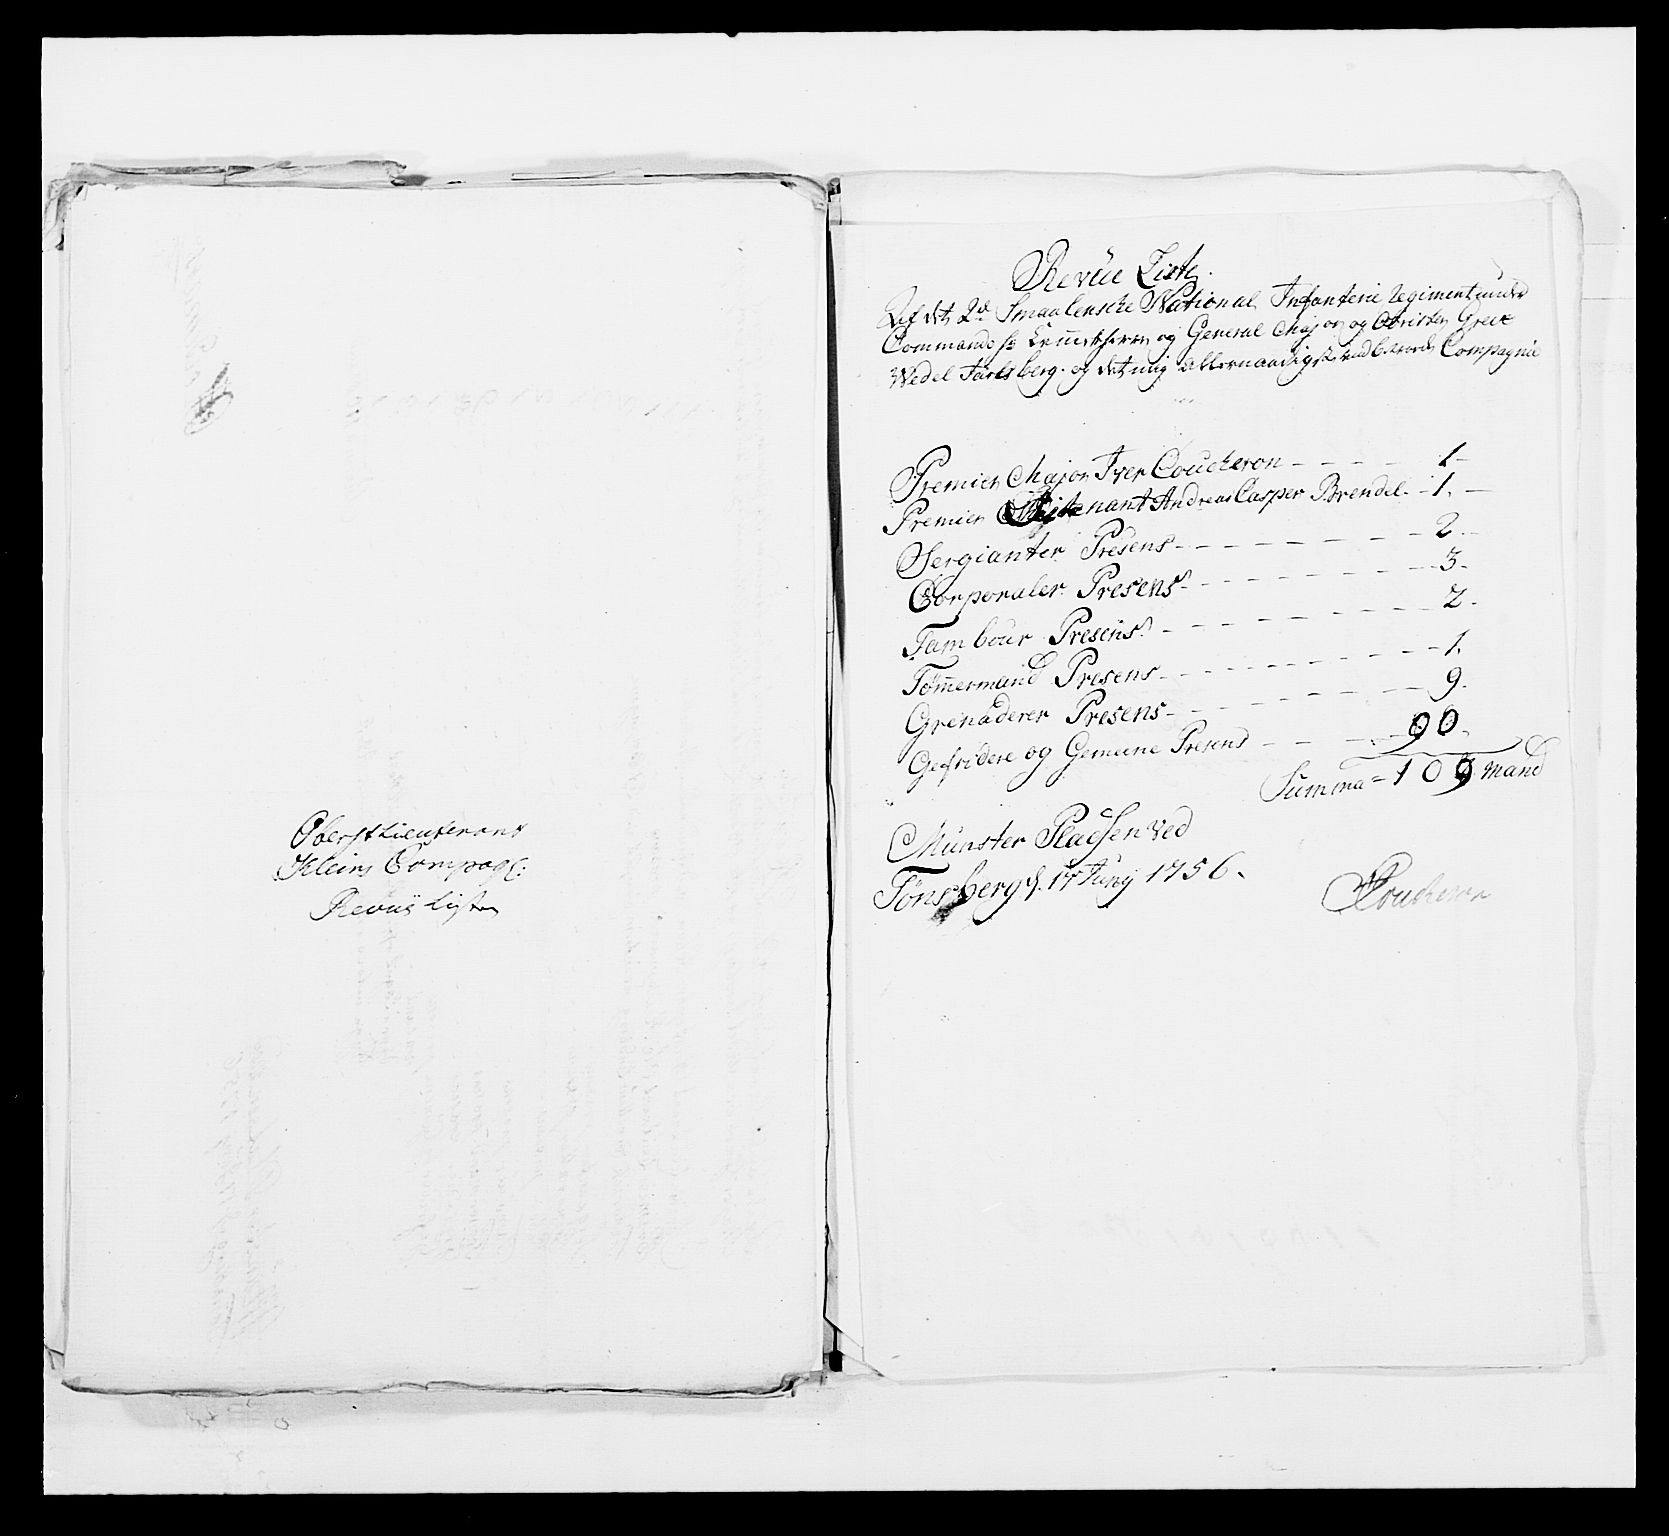 Oberst Lieutenant
Kleins Compag:
Revue Liste
Revüe Liste.
Af det 2de Smaalenske National Infanterie Regiment under
Commando og General Major og Obrister Greve
Wedel Jarlsberg. og det mig allernaadigst anbetroede Compagnie
Premier Major Iver Coucheron - - - - 1 -
Premier Leutenant Andreas Casper Brendel. - 1. -
Sergianter Presens - - - - - - - - 2. -
Corporaler. Presens - - - - - - - - 3.
Tambour Presens - - - - - - - - 2.
Tøm̅ermand Presens - - - - - - - - 1.
Grenaderer Presens - - - - - - - - 9.
Gefridere og Gemeene Presens - - - - 90.
Summa = 109 Mand
Munster Pladsen ved
Tønsberg d. 17 Juny 1756.
Coucheron